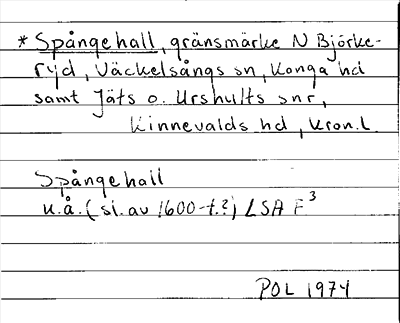 * Spångehall, gränsmärke N Björke-
ryd, Väckelsångs sn, Konga hd
samt Jäts o. Urshults snr,
Kinnevalds hd, Kron.l.
Spångehall
u.å. (sl. av 1600-t.?) LSA F³
POL 1974